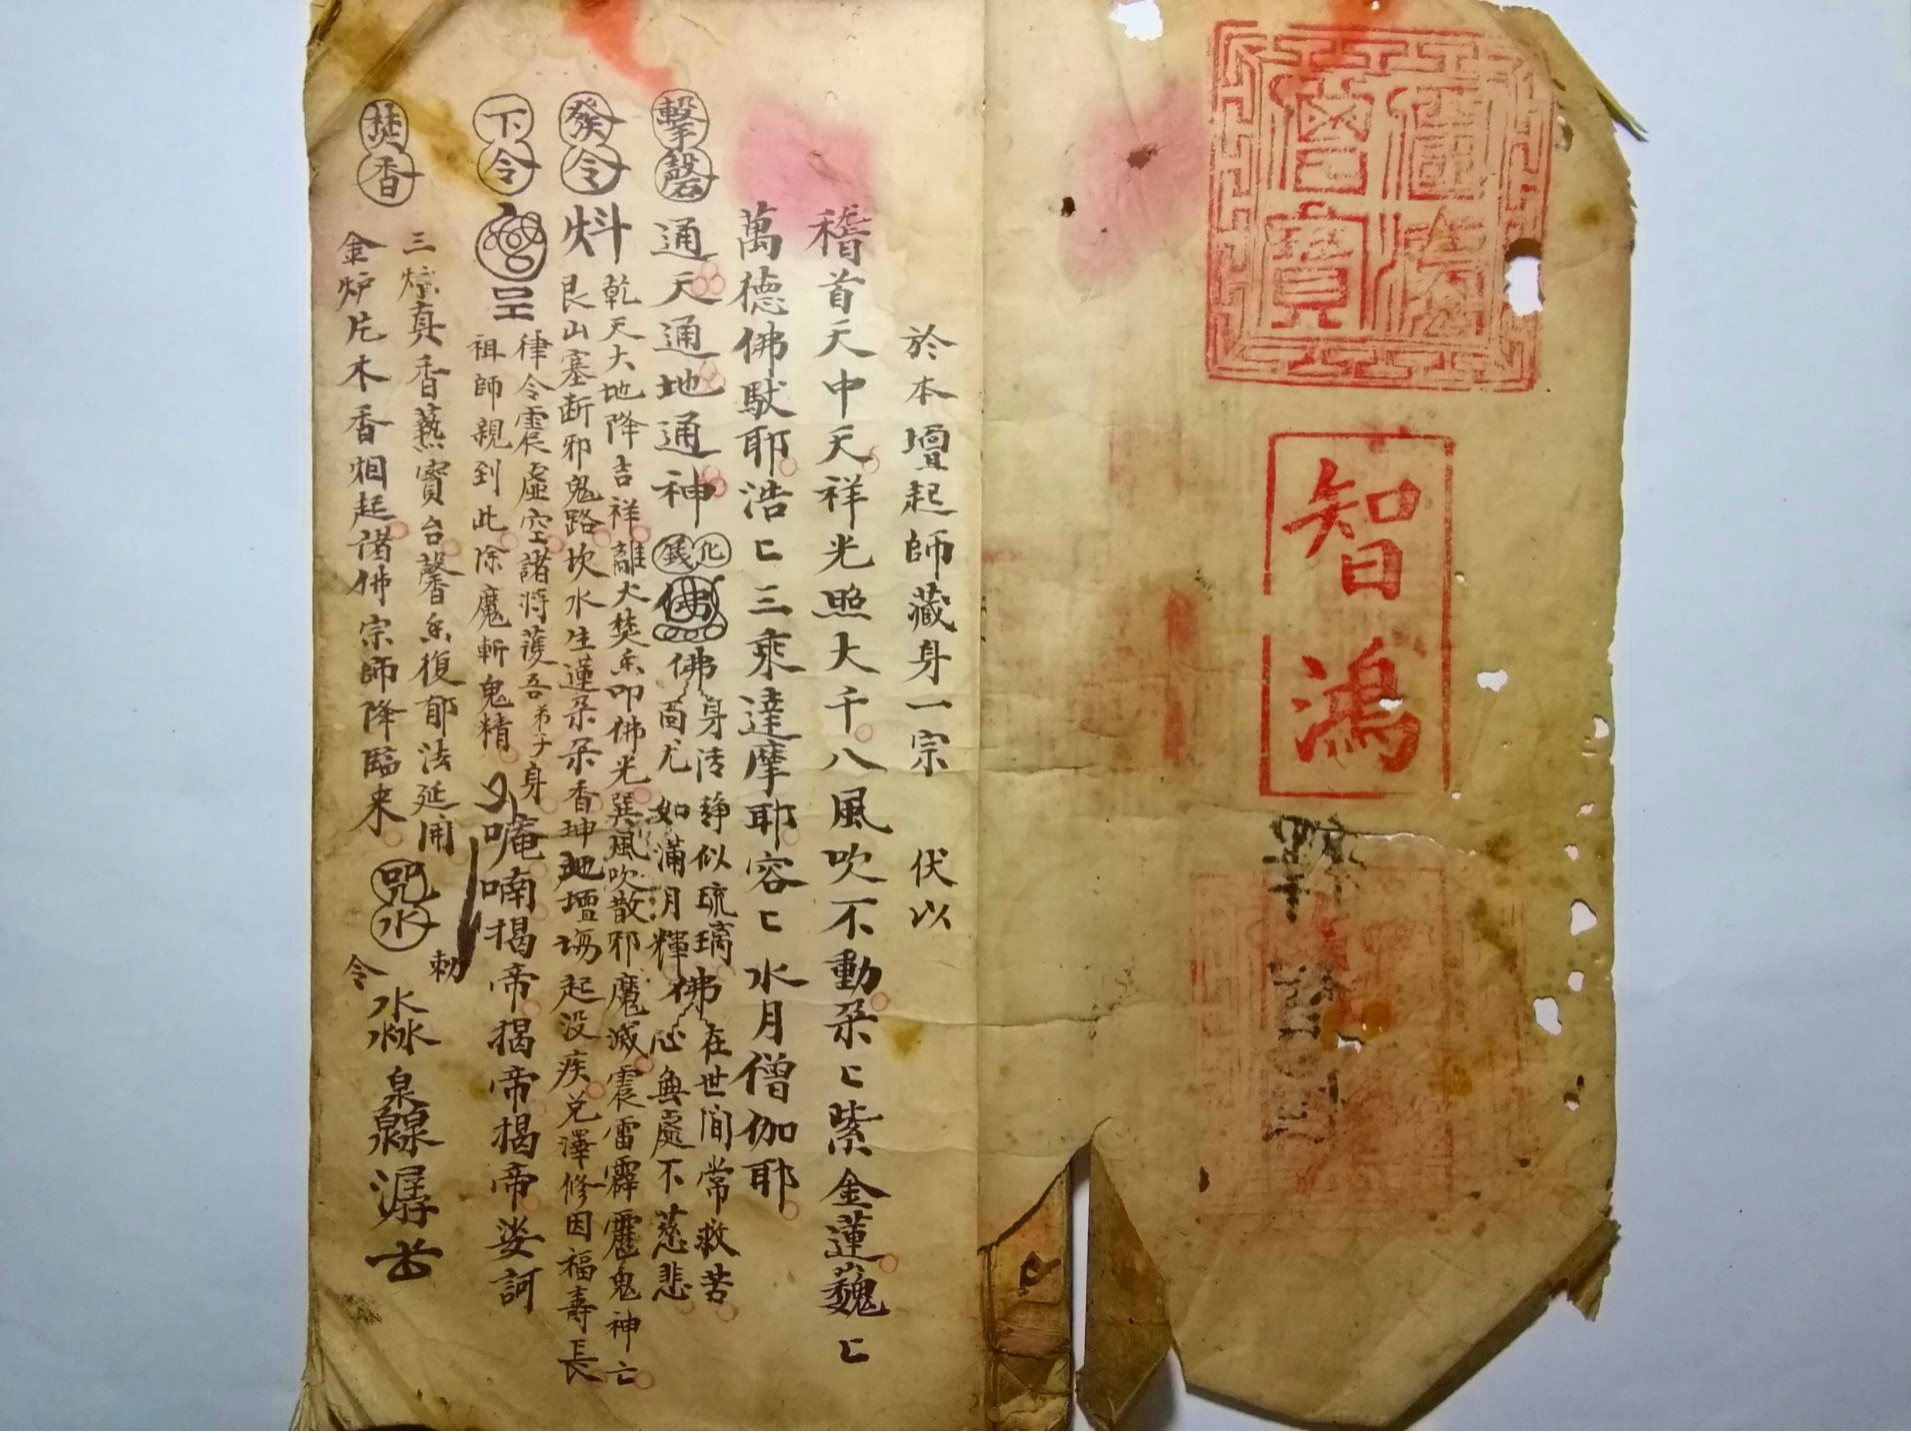 佛法僧寶
智鴻
於本壇起師藏身一宗 伏以
稽首天中天祥光照大千八風吹不動朵匕紫金蓮巍匕
萬德佛馱耶浩匕三乘達摩耶容匕水月僧伽耶
擊磬 通天通地通神 化錢 佛
佛身清靜似琉璃佛在世間常救苦
佛面尤如滿月輝佛心無處不慈悲
發令 炓 乾天大地降吉祥離火焚香叩佛光巽風吹散邪魔滅震雷霹靂鬼神亡
艮山塞断邪鬼路坎水生蓮朵朵香坤地壇塲起没疾兑澤修因福壽長
下令 律令震虛空諸將護吾弟子身
祖師親到此除魔斬鬼精
唵喃揭帝揭帝揭帝娑訶
焚香 三炷真香爇寶台馨香復郁法延開
金炉片木香烟起诸佛宗師降臨来
咒水 勅令 水淼 泉灥 潺